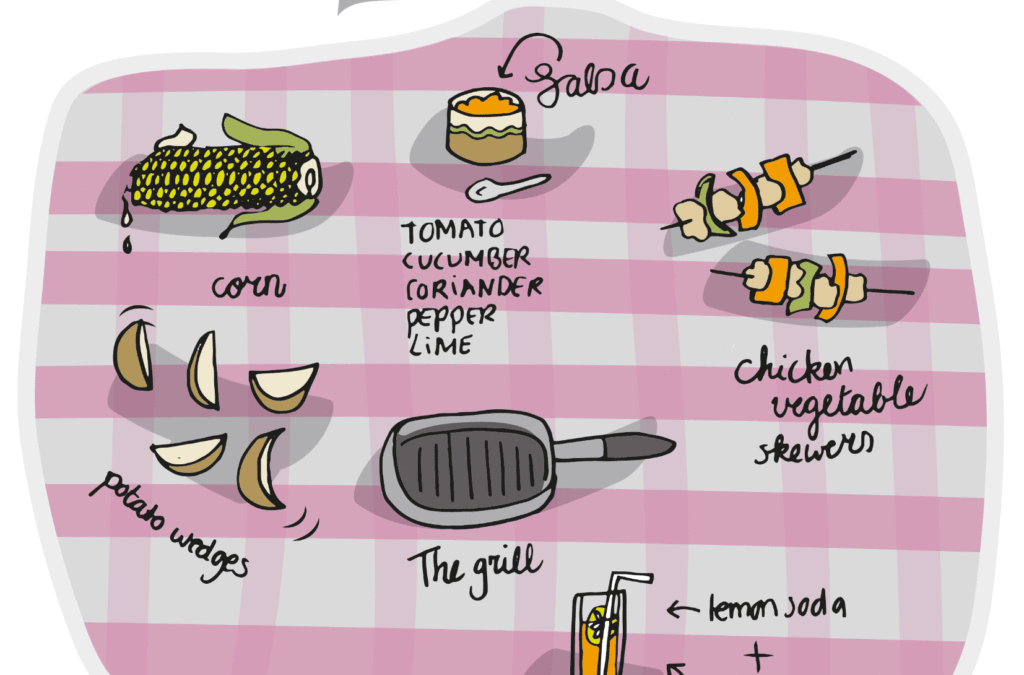 Salsa
TOMATO
CUCUMBER
CORIANDER
PEPPER
LIME
corn
chicken
vegetable
skewers
potato wedges
The grill
← lemon soda
+